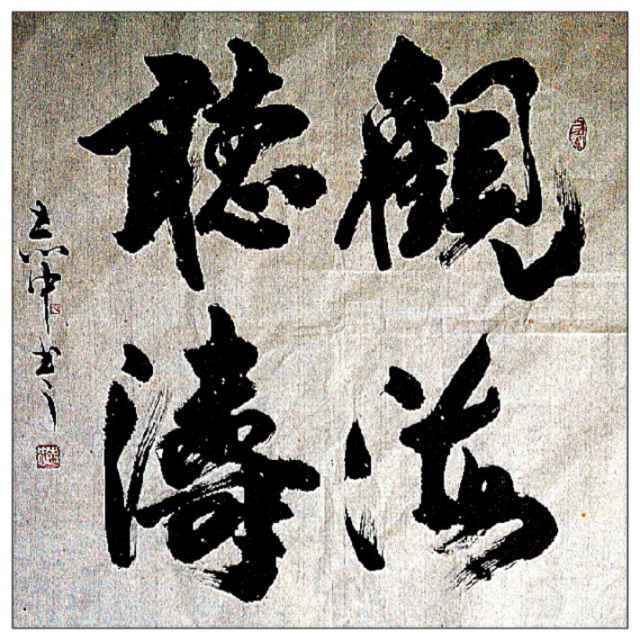 觀海
聽濤
志中书